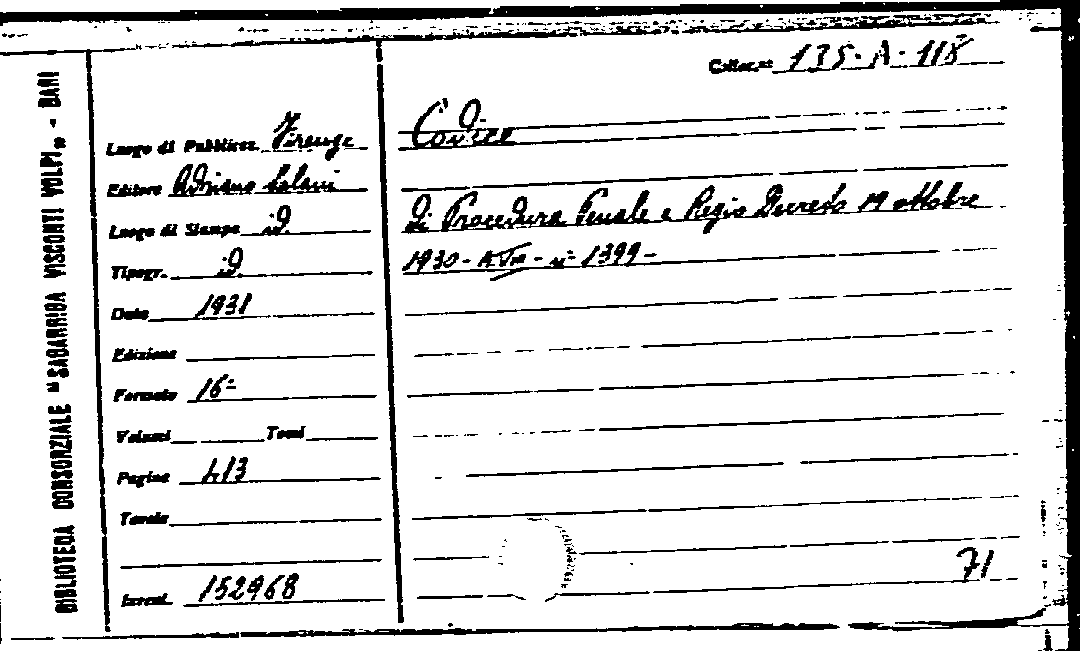 BIBLIOTECA CONSORZIALE "SAGARRIGA VISCONTI VOLPI" - BARI
Colloc.ne 135-A-118
Luogo di Pubblicaz. Firenze
Codice
Editore Adriano Salani
Luogo di Stampa id.
Di Procedura Penale e Regio Decreto 19 ottobre
Tipogr. id.
1930 - n° 1399 -
Data 1931
Edizione
Formato 16°
Volumi Tomi
Pagine 413
Tavole
Invent. 152968
71